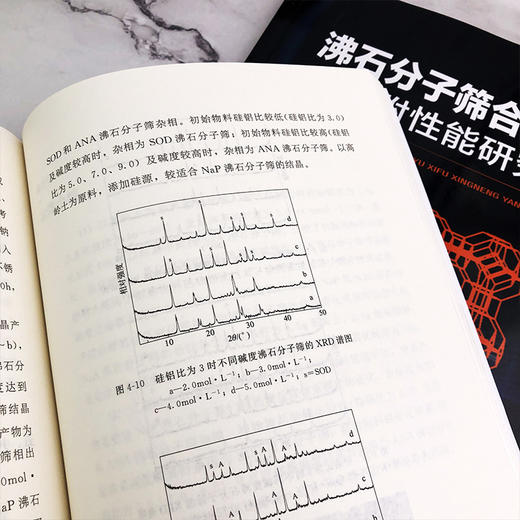 SOD 和 ANA 沸石分子筛杂相。初始物料硅铝比较低(硅铝比为 3.0)
及碱度较高时，杂相为 SOD 沸石分子筛；初始物料硅铝比较高(硅铝
比为 5.0、7.0、9.0) 及碱度较高时，杂相为 ANA 沸石分子筛。以高
岭土为原料，添加硅源，较适合 NaP 沸石分子筛的结晶。
相对强度
s
s
s
s
s
d
c
b
a
10
20
30
40
50
2θ/(°)
图 4-10 硅铝比为 3 时不同碱度沸石分子筛的 XRD 谱图
a—2.0mol·L⁻¹；b—3.0mol·L⁻¹；
c—4.0mol·L⁻¹；d—5.0mol·L⁻¹；s=SOD
s
A
s
A
A
d
A
A
A
c
b
考
钠
入
不锈
0h,
晶产
~b),
石分
度达到
筛结晶
产物为
筛相出
0mol·
aP 沸石
沸石分子筛合
附性能研究
YU XIFU XINGNENG YAN